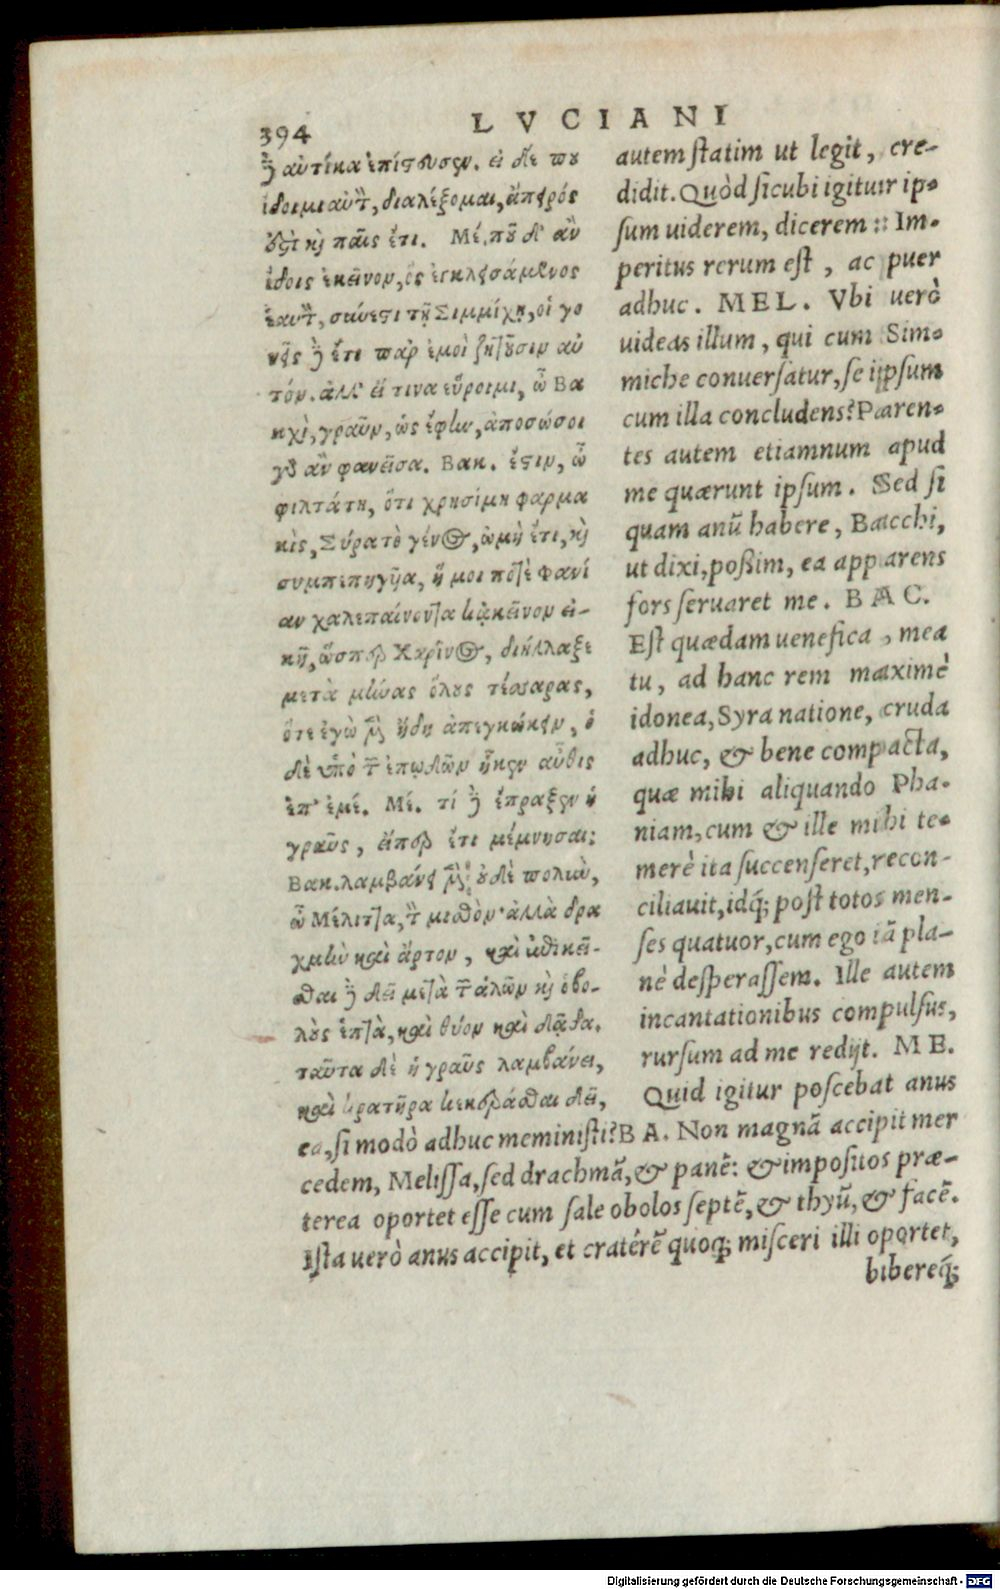 394
LVCIANI
δ᾽ αὐτίκα ἐπίστευσεν. εἰ δέ που
ἴδοιμι αὐτὸν, διαλέξομαι, ἄπειρός
ἐστὶ καὶ παῖς ἔτι. Μέ. ποῦ δ᾽ ἂν
ἴδοις ἐκεῖνον, ὃς ἐγκλεισάμενος
ἑαυτὸν, σύνεστι τῇ Σιμμίχῃ, οἱ γο
νεῖς δ᾽ ἔτι παρ᾽ ἐμοὶ ζητοῦσιν αὐ
τόν. ἀλλ᾽ εἴ τινα εὕροιμι, ὦ Βα
κχὶ, γραῦν, ὡς ἔφην, ἀποσώσοι
γὰρ ἂν φανεῖσα. Βακ. ἔστιν, ὦ
φιλτάτη, ὅτι χρησίμη φαρμα
κὶς, Σύρα τὸ γένος, ὠμὴ ἔτι, καὶ
συμπεπηγυῖα, ἥ μοι ποτὲ Φανί
αν χαλεπαίνοντα κᾀκεῖνον εἰ-
κῆ, ὥσπερ Χαρῖνος, διήλλαξε
μετὰ μῆνας ὅλους τέσσαρας,
ὅτε ἐγὼ μὲν ἤδη ἀπεγνώκειν, ὁ
δὲ ὑπὸ τῶν ἐπῳδῶν ἧκεν αὖθις
ἐπ᾽ ἐμέ. Μέ. τί δ᾽ ἔπραξεν ἡ
γραῦς, εἴπερ ἔτι μέμνησαι;
Βακ. λαμβάνει μὲν οὐδὲ πολὺν,
ὦ Μέλιττα, τὸν μισθὸν· ἀλλὰ δρα
χμὴν καὶ ἄρτον, καὶ ἐπικεῖ-
σθαι δ᾽ δεῖ μετὰ τῶν ἁλῶν καὶ ὀβο-
λοὺς ἑπτὰ, καὶ θύον καὶ δᾷδα.
ταῦτα δὲ ἡ γραῦς λαμβάνει,
καὶ κρατῆρα κεκερᾶσθαι δεῖ,
autem statim ut legit, cre-
didit. Quòd sicubi igitur ip-
sum uiderem, dicerem: Im-
peritus rerum est, ac puer
adhuc. MEL. Vbi uerò
uideas illum, qui cum Sim-
miche conuersatur, se ipsum
cum illa concludens? Paren-
tes autem etiamnum apud
me quærunt ipsum. Sed si
quam anũ habere, Bacchi,
ut dixi, poßim, ea apparens
fors seruaret me. BAC.
Est quædam uenefica, mea
tu, ad hanc rem maximè
idonea, Syra natione, cruda
adhuc, & bene compacta,
quæ mihi aliquando Pha-
niam, cum & ille mihi te-
merè ita succenseret, recon-
ciliauit, idq́; post totos men-
ses quatuor, cum ego iã pla-
nè desperassem. Ille autem
incantationibus compulsus,
rursum ad me redijt. ME.
Quid igitur poscebat anus
ea, si modò adhuc meministi? BA. Non magnã accipit mer
cedem, Melissa, sed drachmã, & panẽ: & impositos præ-
terea oportet esse cum sale obolos septẽ, & thyũ, & facẽ.
Ista uerò anus accipit, et cratérẽ quoq; misceri illi oportet,
bibereq́;
Digitalisierung gefördert durch die Deutsche Forschungsgemeinschaft - DFG